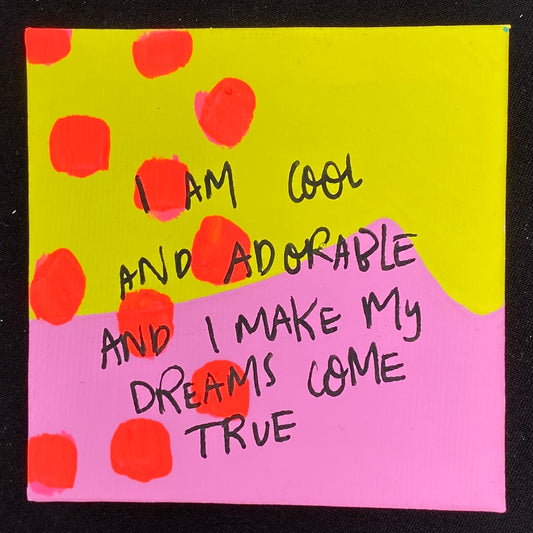 I AM COOL
AND ADORABLE
AND I MAKE My
DREAMS COME
TRUE